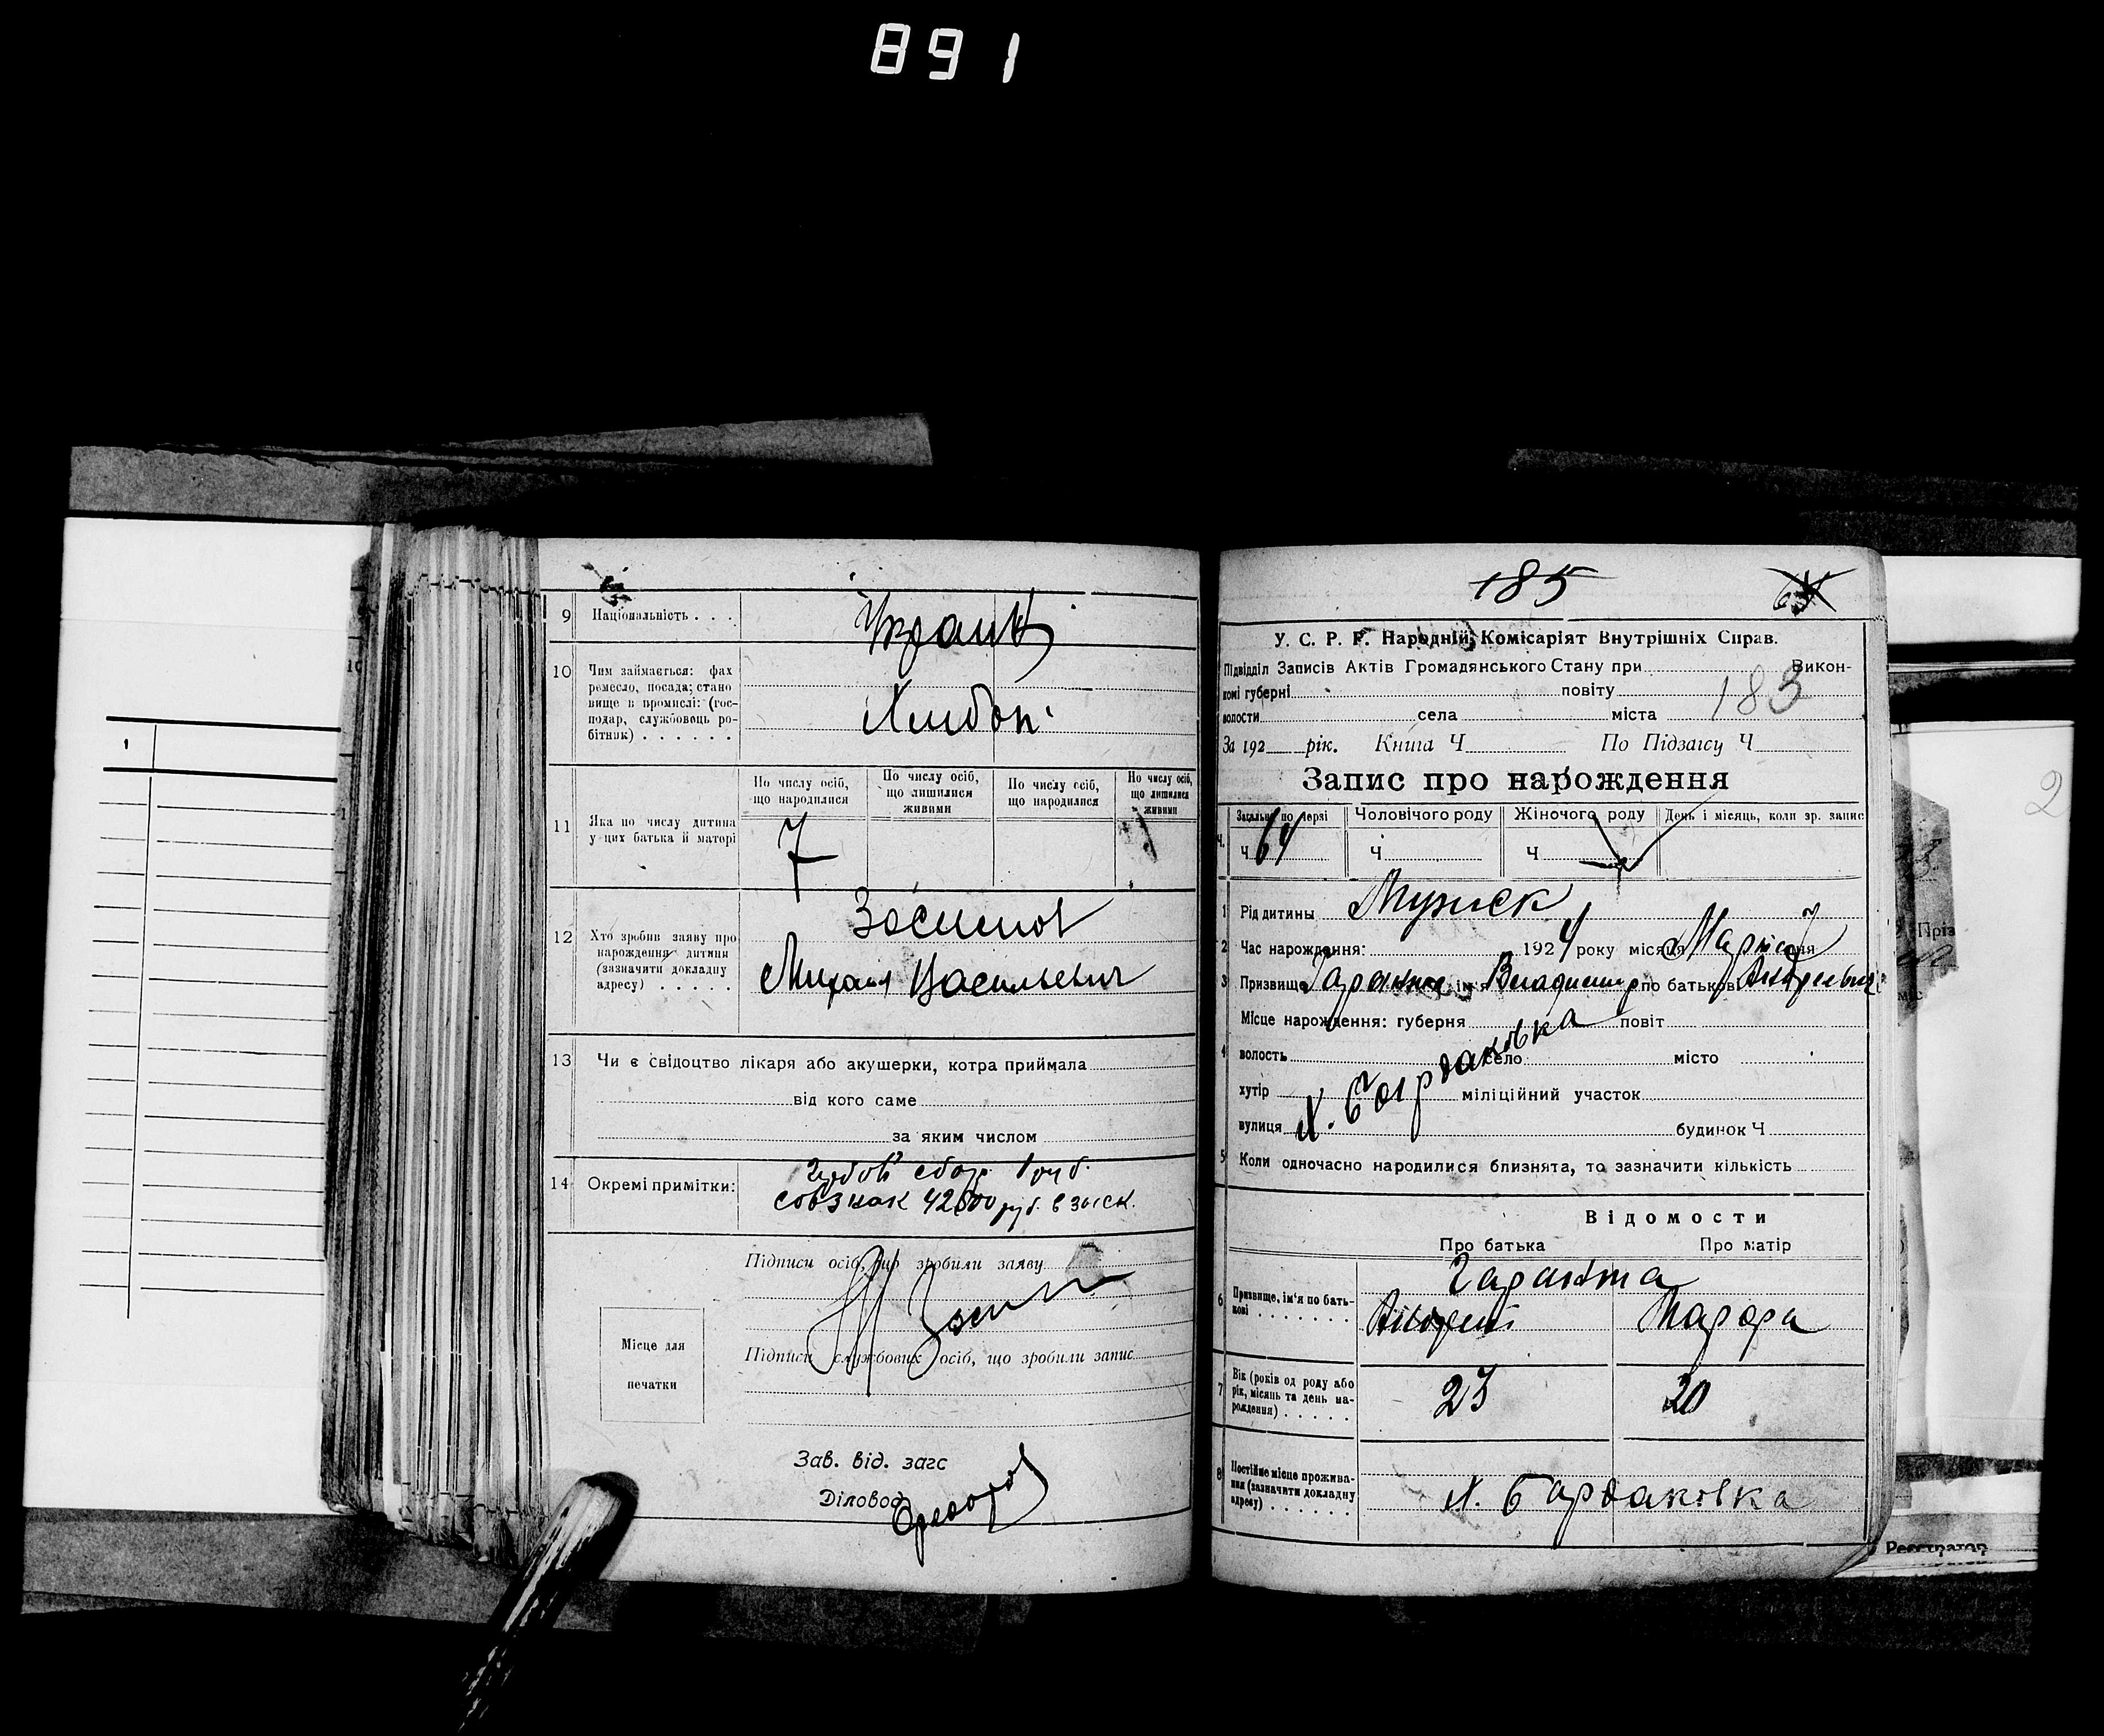 891
9 Національність . . .
Украин
10 Чим займається: фах
ремесло, посада; стано
вище в промислі: (гос-
подар, службовець ро-
бітник) . . . . . .
Хлибоп.
11 Яка по числу дитина
у цих батька й матері
По числу осіб,
що народилися
По числу осіб,
що лишилися
живими
По числу осіб,
що народилися
По числу осіб,
що лишилися
живими
7
12 Хто зробив заяву про
нарождення дитини
(зазначити докладну
адресу) . . . . .
Засимов
Михаил Васильевич
13 Чи є свідоцтво лікаря або акушерки, котра приймала
від кого саме
за яким числом
14 Окремі примітки:
сбор 1 руб.
совзнак 42500 руб. взыск.
Підписи осіб, що зробили заяву
Підписи службових осіб, що зробили запис
Місце для
печатки
Зав. від. загс
Діловод
185
64
У. С. Р. Р. Народній Комісаріят Внутрішніх Справ.
Підвідділ Записів Актів Громадянського Стану при Викон-
комі губерні повіту 183
волости села міста
За 192 рік. Книга Ч По Підзагсу Ч
Запис про нарождення
Загальн. по черзі
Ч 64
Чоловічого роду
Ч
Жіночого роду
Ч
День і місяць, коли зр. запис
1 Рід дитины Мужск
2 Час нарождення: 1924 року місяця Марта 7 дня
3 Призвище ім'я Владимир по батькові Андреевич
Місце нарождення: губерня повіт
4 волость село місто
хутір міліційний участок
вулиця будинок Ч
х. Бардаковка
5 Коли одночасно народилися близнята, то зазначити кількість
Відомости
Про батька Про матір
6 Призвище, ім'я по бать-
кові . . . . . . .
Андрей
7 Вік (років од роду або
рік, місяць та день на-
рождення) . . . . .
23 20
8 Постійне місце прожива-
ння (зазначити докладну
адресу) . . . . . .
х. Бардаковка
Пріз
2
Реєстратор